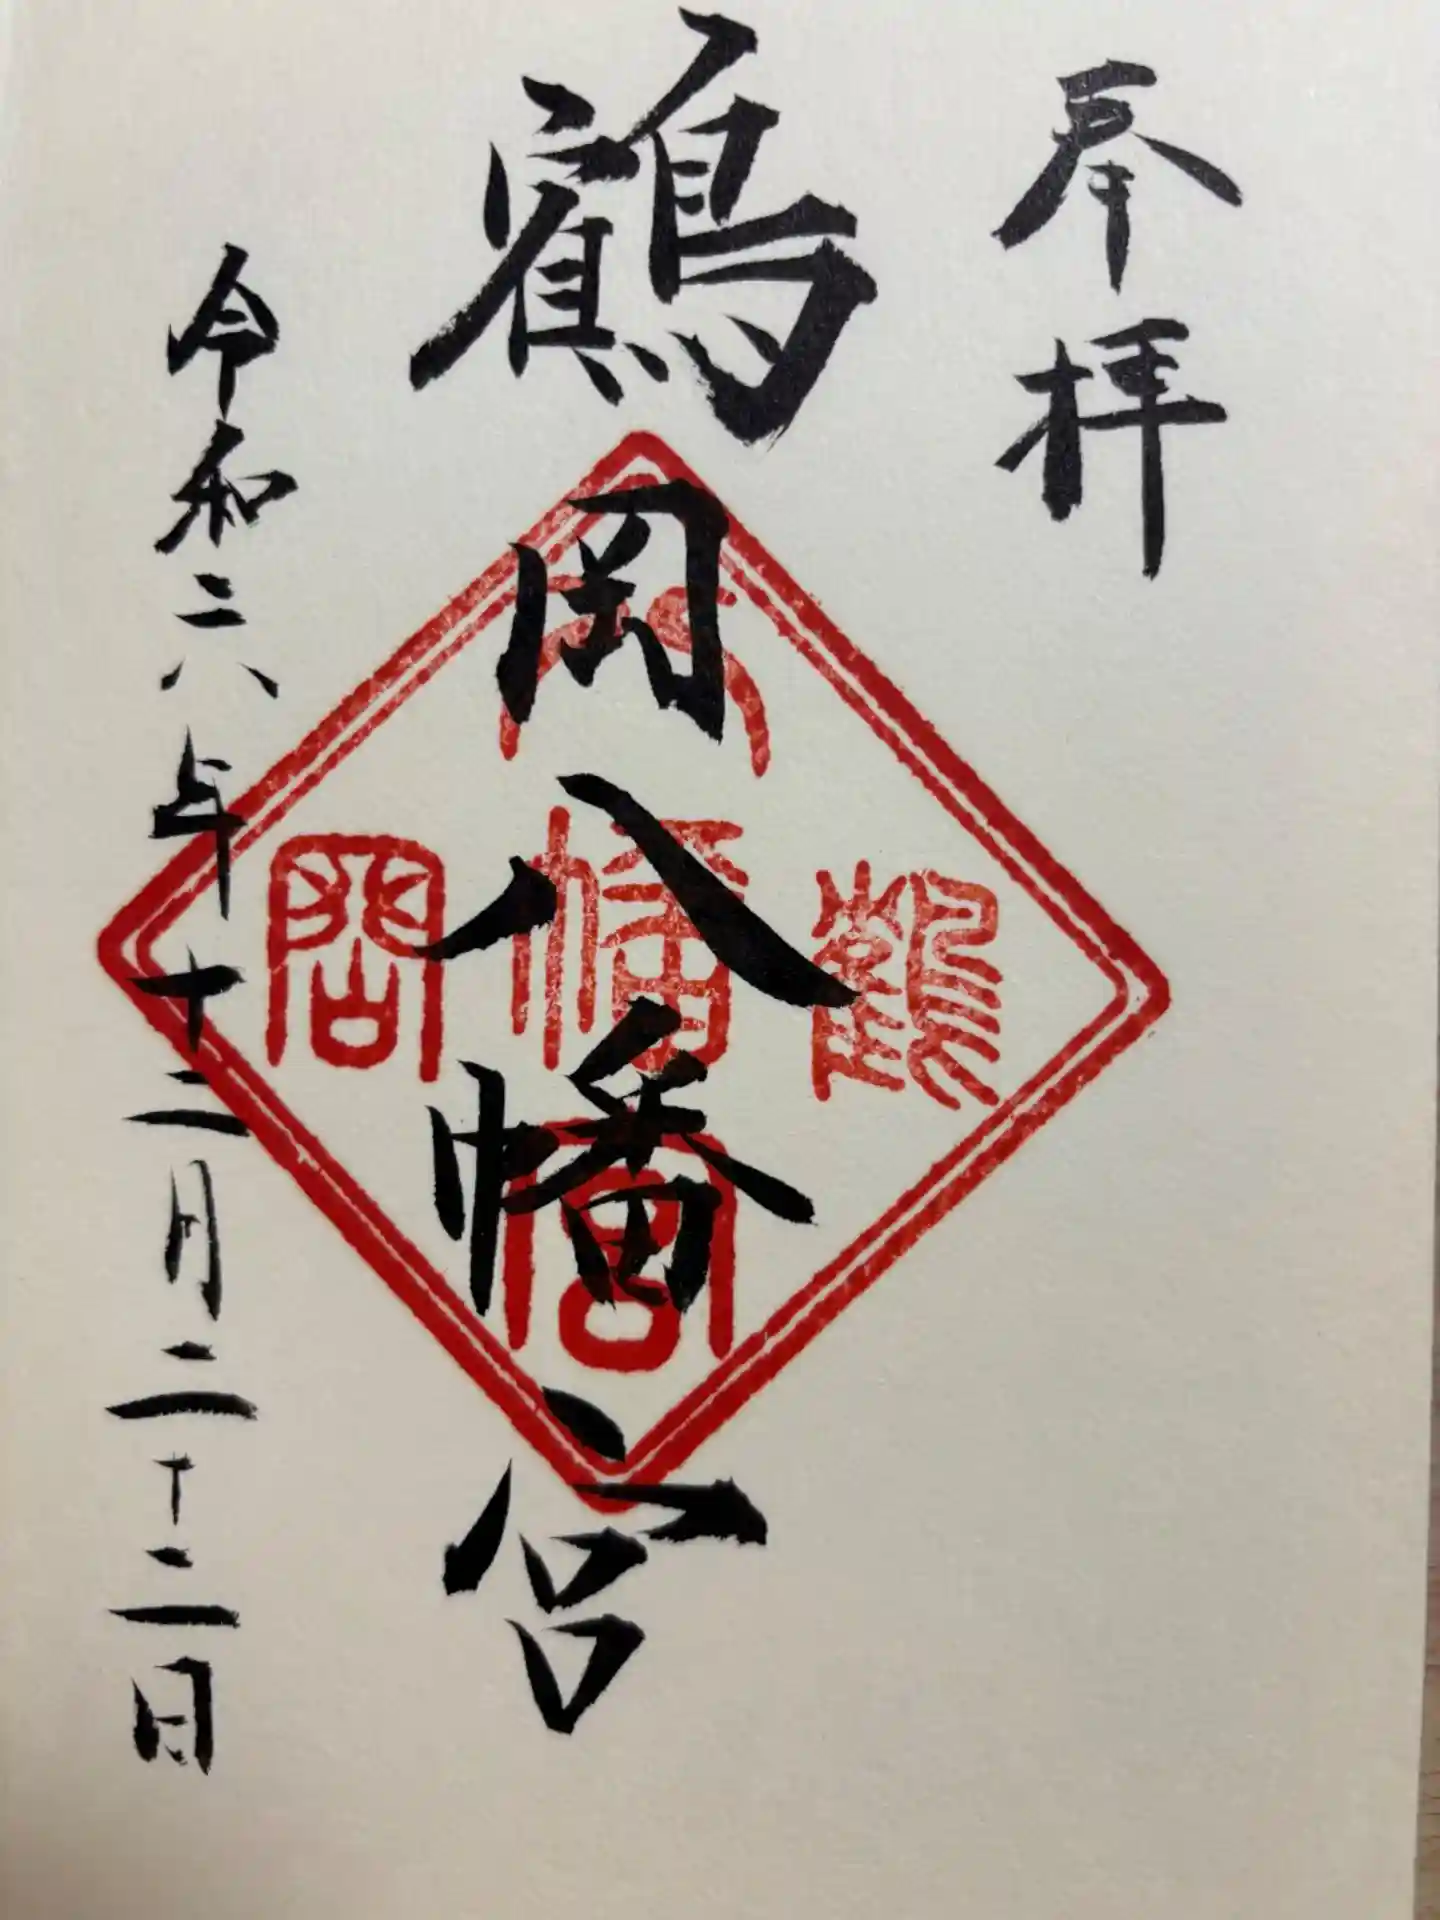 奉拝
鶴岡八幡宮
令和六年十二月二十二日
鶴岡
八幡宮